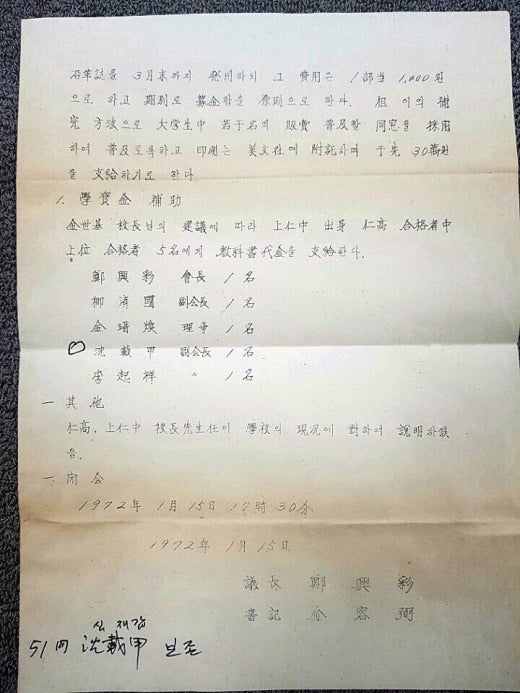 沿革誌를 3月末까지 発刊하되 그 費用은 1部当 1,000원
으로 하고 期別로 募金함을 原則으로 한다. 但 이의 補
完 方途으로 大学生中 若干名의 販賣 普及할 同窓을 採用
하여 普及토록하고 印刷는 美文社에 附託하며 于先 30萬원
을 支給하기로 한다
1. 學資金 補助
金世基 校長님의 建議에 따라 上仁中 出身 仁高 合格者中
上位 合格者 5名에게 教科書代金을 支給한다.
鄭興彩 會長 1名
柳済國 副会長 1名
金瑨煥 理事 1名
沈載甲 副会長 1名
李起祥 〃 1名
一 其他
仁高, 上仁中 校長先生任이 學校의 現况에 對하여 說明하였
음.
一 閉会
1972年 1月 15日 17時 30分
1972年 1月 15日.
議長 鄭興彩
書記 金容弼
심재갑
51回 沈載甲 보존